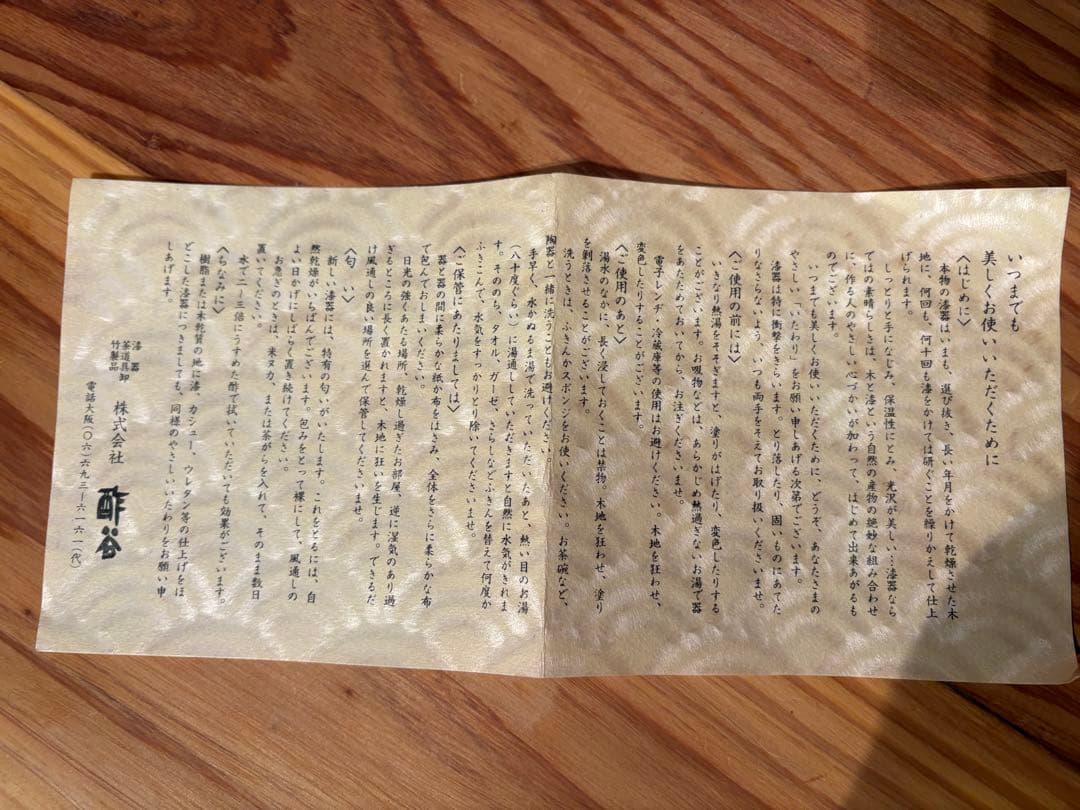 いつまでも
美しくお使いいただくために
〈はじめに〉
本物の漆器はいまも、選び抜き、長い年月をかけて乾燥させた木
地に、何回も、何十回も漆をかけては研ぐことを繰りかえして仕上
げられます。
しっとりと手になじみ、保温性にとみ、光沢が美しい…漆器なら
ではの素晴らしさは、木と漆という自然の産物の絶妙な組み合わせ
に、作る人のやさしい心づかいが加わって、はじめて出来あがるも
のでございます。
いつまでも美しくお使いいただくために、どうぞ、あなたさまの
やさしい「いたわり」をお願い申しあげる次第でございます。
漆器は特に衝撃をきらいます。とり落したり、固いものにあてた
りなさらないよう、いつも両手をそえてお取り扱いくださいませ。
〈ご使用の前には〉
いきなり熱湯をそそぎますと、塗りがはげたり、変色したりする
ことがございます。お吸物などは、あらかじめ熱過ぎないお湯で器
をあたためておいてから、お注ぎくださいませ。
電子レンヂ・冷蔵庫等の使用はお避けください。木地を狂わせ、
変色したりすることがございます。
〈ご使用のあと〉
湯水のなかに、長く浸しておくことは禁物。木地を狂わせ、塗り
を剥落させることがございます。
洗うときは、ふきんかスポンジをお使いください。お茶碗など、
陶器と一緒に洗うこともお避けください。
手早く、水かぬるま湯で洗っていただいたあと、熱い目のお湯
（八十度くらい）に湯通ししていただきますと自然に水気がきれま
す。そののち、タオル、ガーゼ、さらしなどふきんを替えて何度か
ふきこんで、水気をすっかりとり除いてくださいませ。
〈ご保管にあたりましては〉
器と器の間に柔らかな紙か布をはさみ、全体をさらに柔らかな布
で包んでおしまいください。
日光の強くあたる場所、乾燥し過ぎたお部屋、逆に湿気のあり過
ぎるところに長く置かれますと、木地に狂いを生じます。できるだ
け風通しの良い場所を選んで保管してくださいませ。
〈匂い〉
新しい漆器には、特有の匂いがいたします。これをとるには、自
然乾燥がいちばんでございます。包みをとって裸にして、風通しの
よい日かげにしばらく置き続けてください。
お急ぎのときは、米ヌカ、または茶がらを入れて、そのまま数日
置いてください。
水で二～三倍にうすめた酢で拭いていただいても効果がございます。
〈ちなみに〉
樹脂または木乾質の地に漆、カシュー、ウレタン等の仕上げをほ
どこした漆器につきましても、同様のやさしいいたわりをお願い申
しあげます。
漆器
茶道具卸
竹製品
株式会社 酢谷
電話大阪〇六－六九九三－六一六一（代）